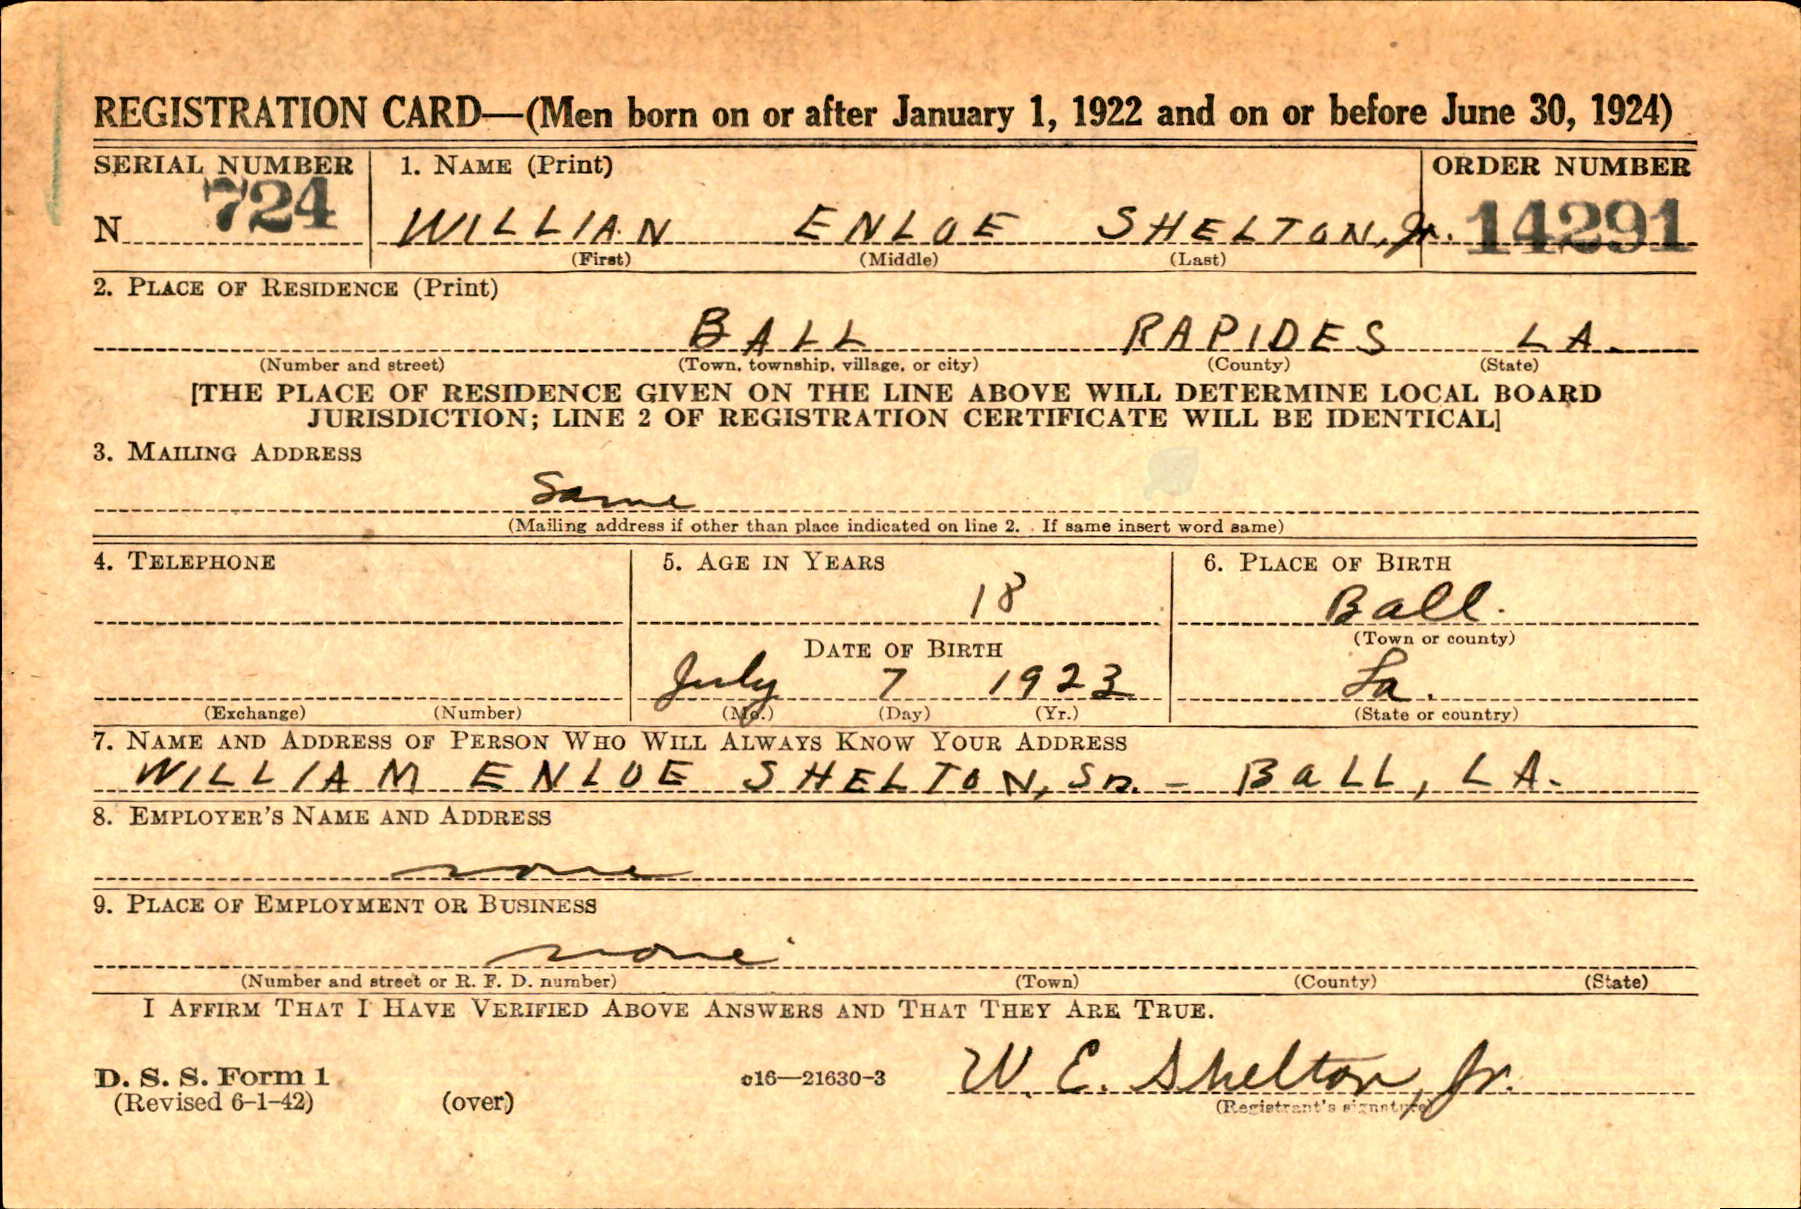 REGISTRATION CARD—(Men born on or after January 1, 1922 and on or before June 30, 1924)
SERIAL NUMBER 1. NAME (Print) ORDER NUMBER
N 724 WILLIAN ENLOE SHELTON, Jr. 14291
(First) (Middle) (Last)
2. PLACE OF RESIDENCE (Print)
BALL RAPIDES LA.
(Number and street) (Town, township, village, or city) (County) (State)
[THE PLACE OF RESIDENCE GIVEN ON THE LINE ABOVE WILL DETERMINE LOCAL BOARD
JURISDICTION; LINE 2 OF REGISTRATION CERTIFICATE WILL BE IDENTICAL]
3. MAILING ADDRESS
Same
(Mailing address if other than place indicated on line 2. If same insert word same)
4. TELEPHONE 5. AGE IN YEARS 6. PLACE OF BIRTH
18 Ball.
(Town or county)
DATE OF BIRTH
July 7 1923 La.
(Exchange) (Number) (Mo.) (Day) (Yr.) (State or country)
7. NAME AND ADDRESS OF PERSON WHO WILL ALWAYS KNOW YOUR ADDRESS
WILLIAM ENLOE SHELTON, Sr. - BaLL, LA.
8. EMPLOYER'S NAME AND ADDRESS
none
9. PLACE OF EMPLOYMENT OR BUSINESS
none
(Number and street or R. F. D. number) (Town) (County) (State)
I AFFIRM THAT I HAVE VERIFIED ABOVE ANSWERS AND THAT THEY ARE TRUE.
D. S. S. Form 1 c16—21630-3 W. E. Shelton, Jr.
(Revised 6-1-42) (over) (Registrant's signature)